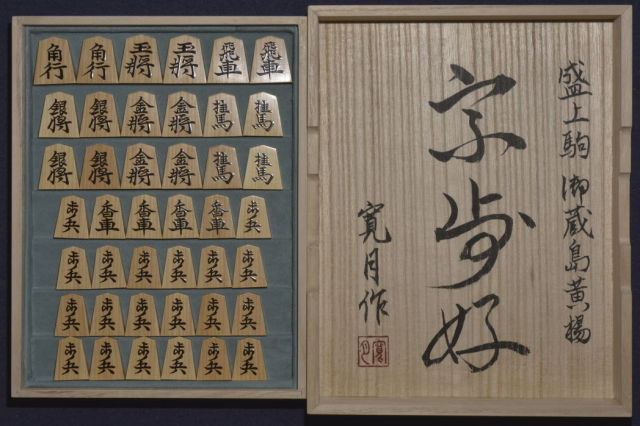 角行 角行 玉将 玉将 飛車 飛車
銀将 銀将 金将 金将 桂馬 桂馬
銀将 銀将 金将 金将 桂馬 桂馬
歩兵 香車 香車 香車 香車 歩兵
歩兵 歩兵 歩兵 歩兵 歩兵 歩兵
歩兵 歩兵 歩兵 歩兵 歩兵 歩兵
歩兵 歩兵 歩兵 歩兵 歩兵 歩兵
盛上駒 御蔵島黄楊
宗歩好
寛月作